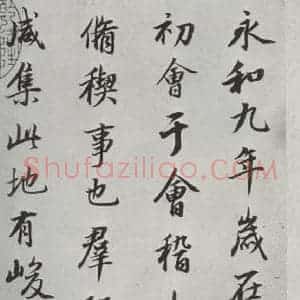 永和九年歲在
初會于會稽
脩稧事也羣
咸集此地有峻
Shufaziliao.COM